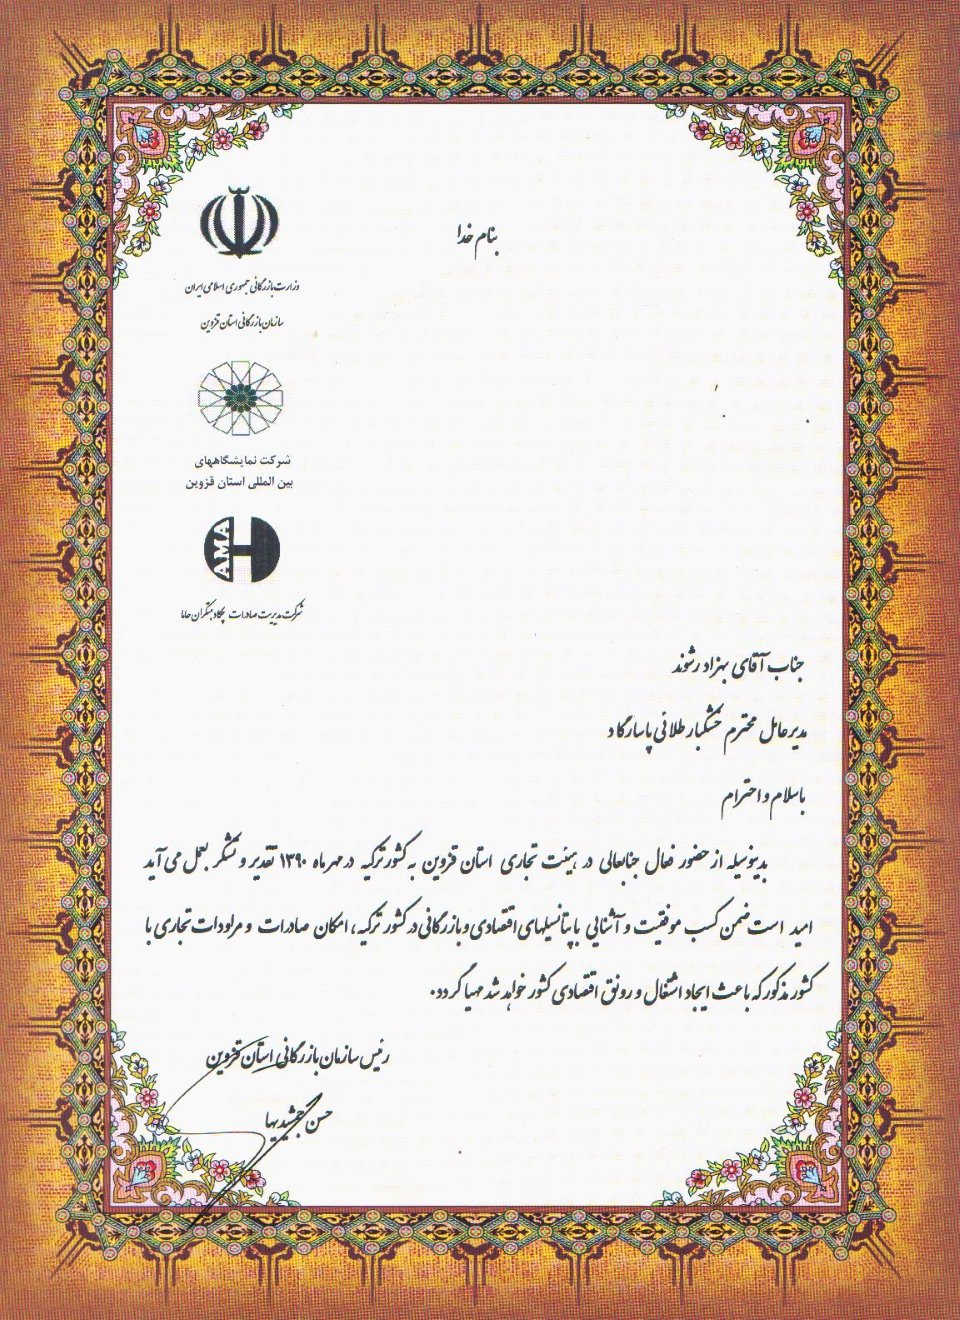 بنام خدا
وزارت بازرگانی جمهوری اسلامی ایران
سازمان بازرگانی استان قزوین
شرکت نمایشگاههای
بین المللی استان قزوین
HAMA
شرکت مدیریت صادرات پگاد مبتکران هاما
جناب آقای بهزاد رشوند
مدیرعامل محترم خشکبار طلائی پاسارگاد
باسلام و احترام
بدینوسیله از حضور فعال جنابعالی در هیئت تجاری استان قزوین به کشور ترکیه در مهر ماه ۱۳۹۰ تقدیر و تشکر بعمل می آید
امید است ضمن کسب موفقیت و آشنایی با پتانسیلهای اقتصادی و بازرگانی در کشور ترکیه ، امکان صادرات و مراودات تجاری با
کشور مذکور که باعث ایجاد اشتغال و رونق اقتصادی کشور خواهد شد مهیا گردد.
رئیس سازمان بازرگانی استان قزوین
حسن جمشیدیها